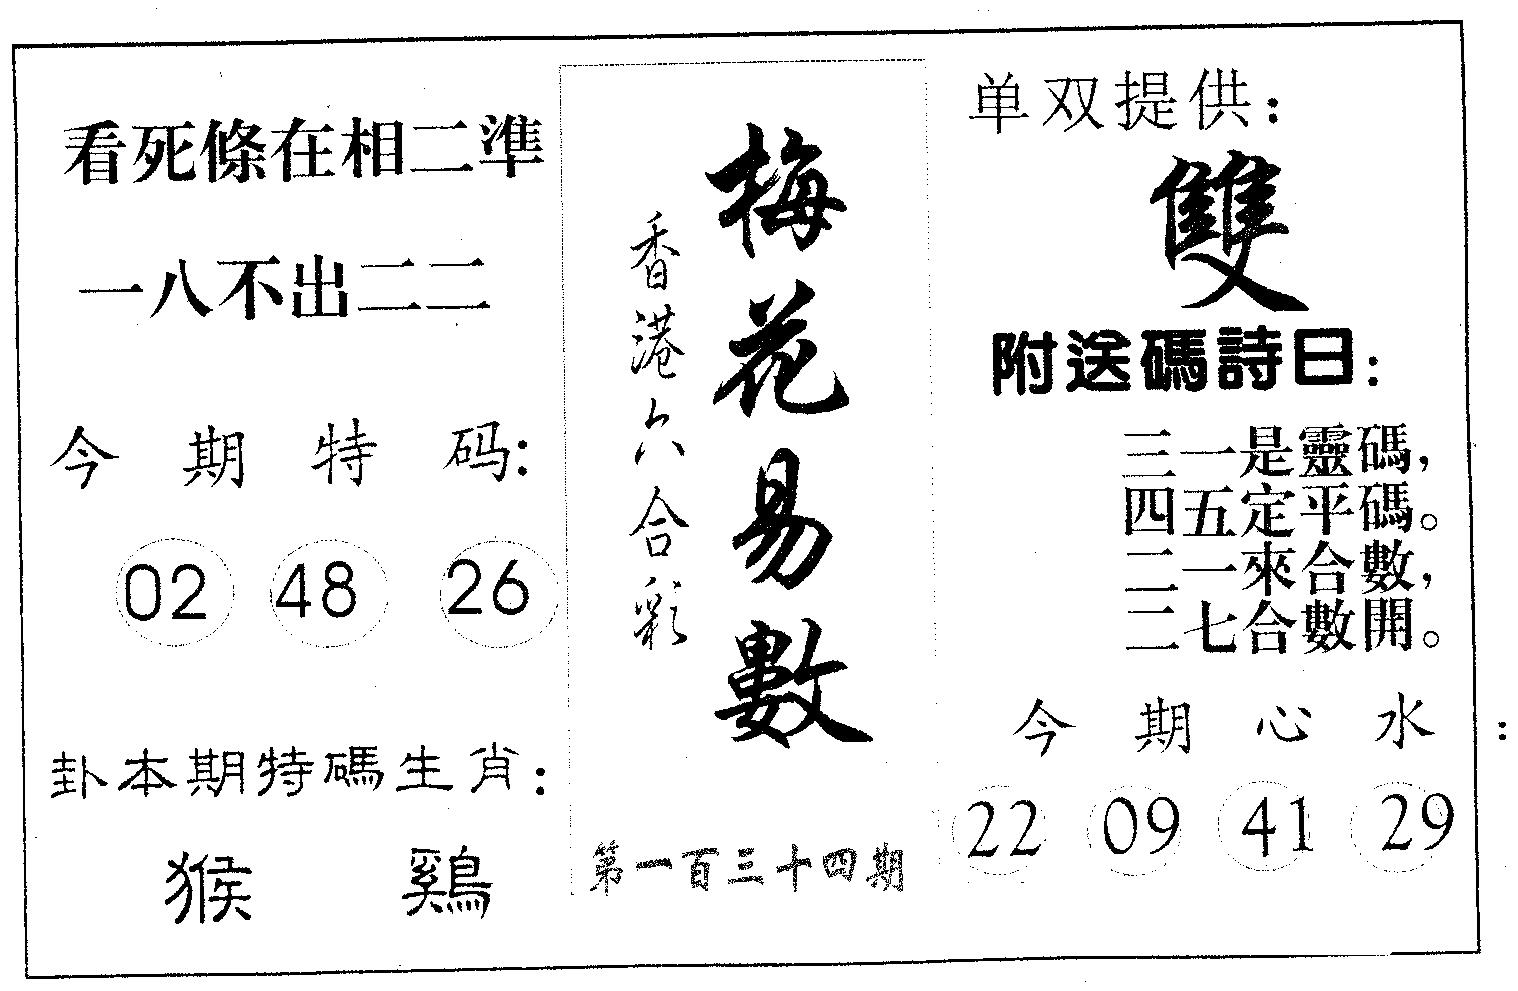 看死條在相二準
一八不出二二
今期特码:
02 48 26
卦本期特碼生肖:
猴 鷄
梅花易數
香港六合彩
第一百三十四期
单双提供:
雙
附送碼詩曰:
三一是靈碼,
四五定平碼。
二一來合數,
二七合數開。
今期心水:
22 09 41 29